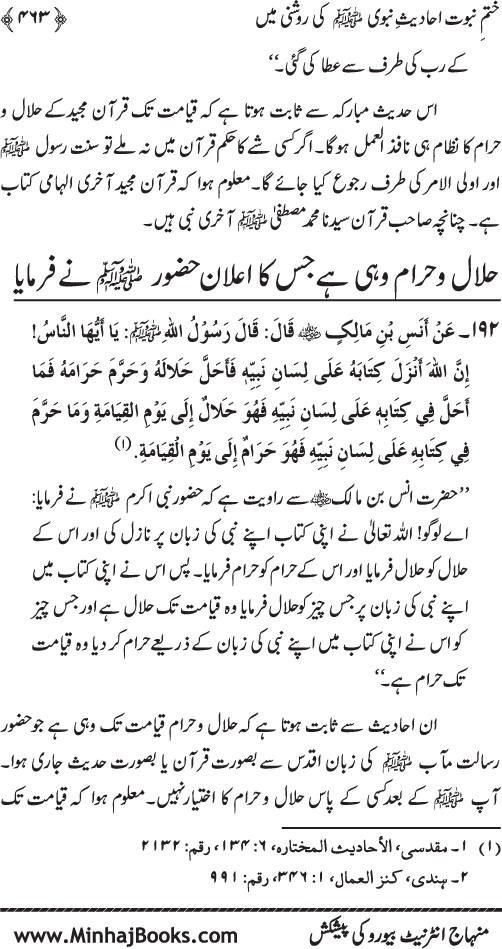 ختمِ نبوت احادیثِ نبوی ﷺ کی روشنی میں ﴿۴۶۳﴾
کے رب کی طرف سے عطا کی گئی۔‘‘
اس حدیث مبارکہ سے ثابت ہوتا ہے کہ قیامت تک قرآن مجید کے حلال و
حرام کا نظام ہی نافذ العمل ہوگا۔ اگر کسی شے کا حکم قرآن میں نہ ملے تو سنت رسول ﷺ
اور اولی الامر کی طرف رجوع کیا جائے گا۔ معلوم ہوا کہ قرآن مجید آخری الہامی کتاب
ہے۔ چنانچہ صاحب قرآن سیدنا محمد مصطفیٰ ﷺ آخری نبی ہیں۔
حلال و حرام وہی ہے جس کا اعلان حضور ﷺ نے فرمایا
۱۹۲۔ عَنْ أَنَسِ بْنِ مَالِكٍ ؓ قَالَ: قَالَ رَسُوْلُ اللهِ ﷺ: يَا أَيُّهَا النَّاسُ!
إِنَّ اللهَ أَنْزَلَ كِتَابَهُ عَلَى لِسَانِ نَبِيِّهٖ فَأَحَلَّ حَلَالَهُ وَحَرَّمَ حَرَامَهُ فَمَا
أَحَلَّ فِي كِتَابِهٖ عَلَى لِسَانِ نَبِيِّهٖ فَهُوَ حَلَالٌ إِلَى يَوْمِ القِيَامَةِ وَمَا حَرَّمَ
فِي كِتَابِهِ عَلَى لِسَانِ نَبِيِّهِ فَهُوَ حَرَامٌ إِلَى يَوْمِ الْقِيَامَةِ.(۱)
’’حضرت انس بن مالک ؓ سے راویت ہے کہ حضور نبی اکرم ﷺ نے فرمایا:
اے لوگو! اللہ تعالیٰ نے اپنی کتاب اپنے نبی کی زبان پر نازل کی اور اس کے
حلال کو حلال فرمایا اور اس کے حرام کو حرام فرمایا۔ پس اس نے اپنی کتاب میں
اپنے نبی کی زبان پر جس چیز کو حلال فرمایا وہ قیامت تک حلال ہے اور جس چیز
کو اس نے اپنی کتاب میں اپنے نبی کی زبان کے ذریعے حرام کر دیا وہ قیامت
تک حرام ہے۔‘‘
ان احادیث سے ثابت ہوتا ہے کہ حلال و حرام قیامت تک وہی ہے جو حضور
رسالت مآب ﷺ کی زبان اقدس سے بصورت قرآن یا بصورت حدیث جاری ہوا۔
آپ ﷺ کے بعد کسی کے پاس حلال و حرام کا اختیار نہیں۔ معلوم ہوا کہ قیامت تک
(۱) ۱۔ مقدسی، الأحادیث المختاره، ۶: ۱۳۴، رقم: ۲۱۳۲
۲۔ ہندی، کنز العمال، ۱: ۳۴۶، رقم: ۹۹۱
منہاج انٹرنیٹ بیورو کی پیشکش www.MinhajBooks.com